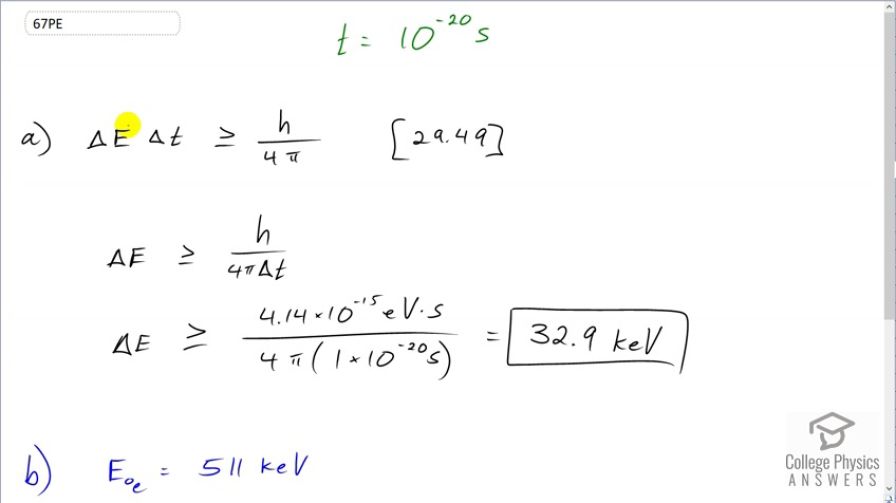 67PE
t = 10⁻²⁰ s
a) ΔE Δt ≥ h/4π [29.49]
ΔE ≥ h/4πΔt
ΔE ≥ 4.14×10⁻¹⁵ eV·s/4π(1×10⁻²⁰s) = 32.9 keV
b) E₀ₑ = 511 keV
College Physics
ANSWERS